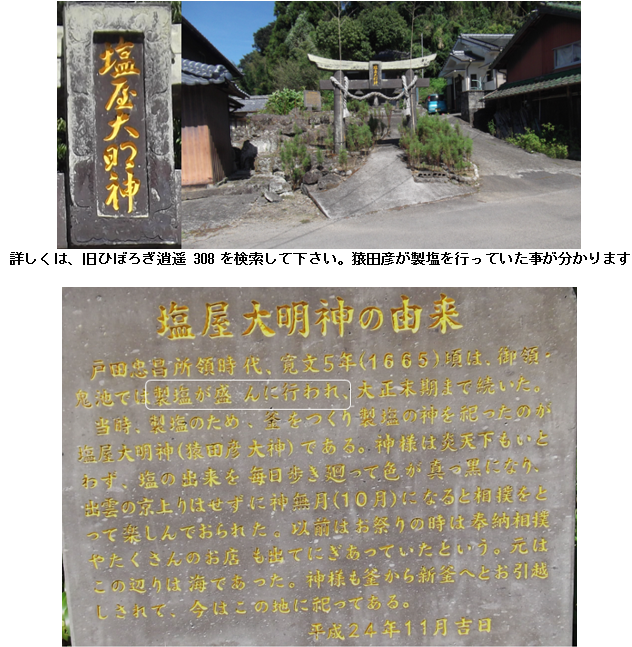 塩屋大明神
詳しくは、旧ひぼろぎ逍遥 308 を検索して下さい。猿田彦が製塩を行っていた事が分かります
塩屋大明神の由来
戸田忠昌所領時代、寛文5年(1665)頃は、御領・
鬼池では製塩が盛んに行われ、大正末期まで続いた。
当時、製塩のため、釜をつくり製塩の神を祀ったのが
塩屋大明神(猿田彦大神)である。神様は炎天下もいと
わず、塩の出来を毎日歩き廻って色が真っ黒になり、
出雲の京上りはせずに神無月(10月)になると相撲をと
って楽しんでおられた。以前はお祭りの時は奉納相撲
やたくさんのお店も出てにぎあっていたという。元は
この辺りは海であった。神様も釜から新釜へとお引越
しされて、今はこの地に祀ってある。
平成24年11月吉日